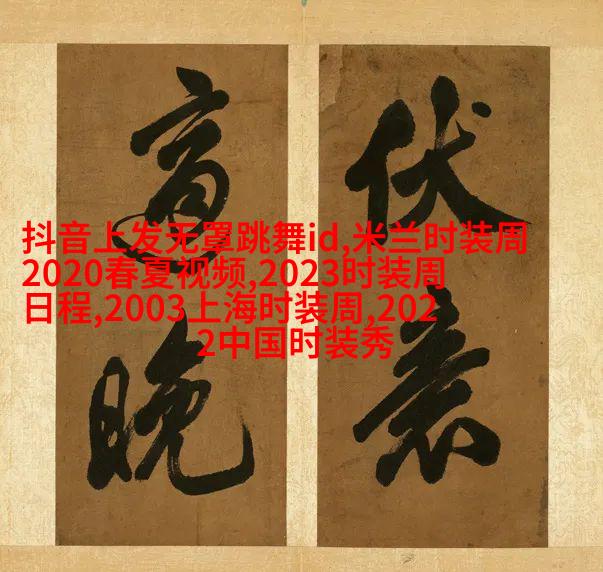 抖音上发无罩跳舞id,米兰时装周
2020春夏视频,2023时装周
日程,2003上海时装周,202
2中国时装秀
伏
晚